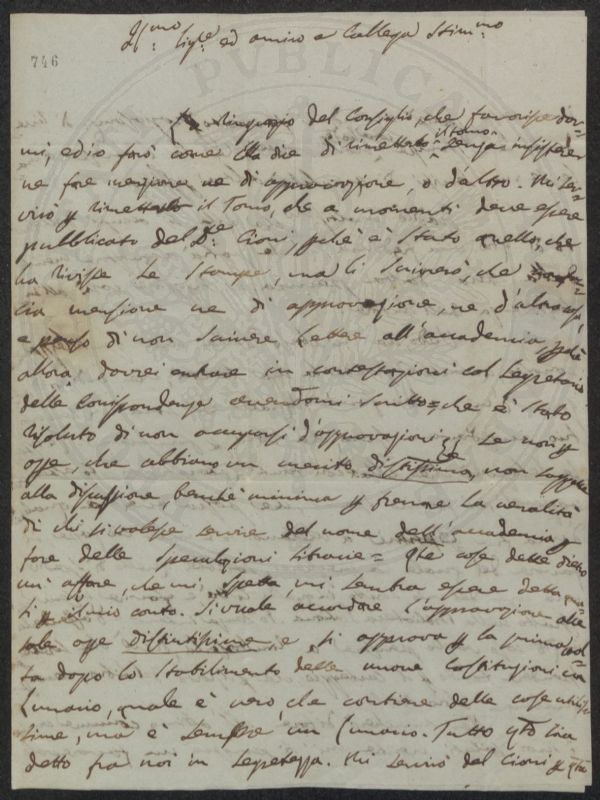 Ill.mo Sig.re ed amico e Collega Stim.mo
746
La ringrazio del Consiglio, che favorisce dar-
mi, ed io farò come Ella dice di rimettere il tomo senza insistere
ne fare menzione ne di approvazione, o d'altro. Mi ser-
virò p rimetterlo il Tomo, che a momenti deve essere
pubblicato del D.re Cioni, pchè è stato quello, che
ha rivisse le Stampe, ma li scriverò, che
cia menzione ne di approvazione, ne d'altro
e penso di non scrivere Lettere all'accademia pchè
allora dovrei entrare in contestazioni col Segretario
delle Corrispondenze avendomi scritto = che è stato
risoluto di non occuparsi d'approvazioni se non p
ope, che abbiano un merito distintissimo, non
alla discussione, benchè minima p frenare la venalità
di chi si volesse servire del nome dell'accademia p
fare delle speculazioni librarie = qte cose dette dietro
un affare, che mi spetta, mi sembra essere detta
p il mio conto. Si vuole accordare l'approvazione alle
sole ope distintissime, e si approva p la prima vol-
ta dopo lo stabilimento delle nuove Costituzioni un
Lunario, quale è vero, che contiene delle cose utilis-
sime, ma è sempre un Lunario. Tutto qto sia
detto fra noi in segretezza. Mi servirò del Cioni p